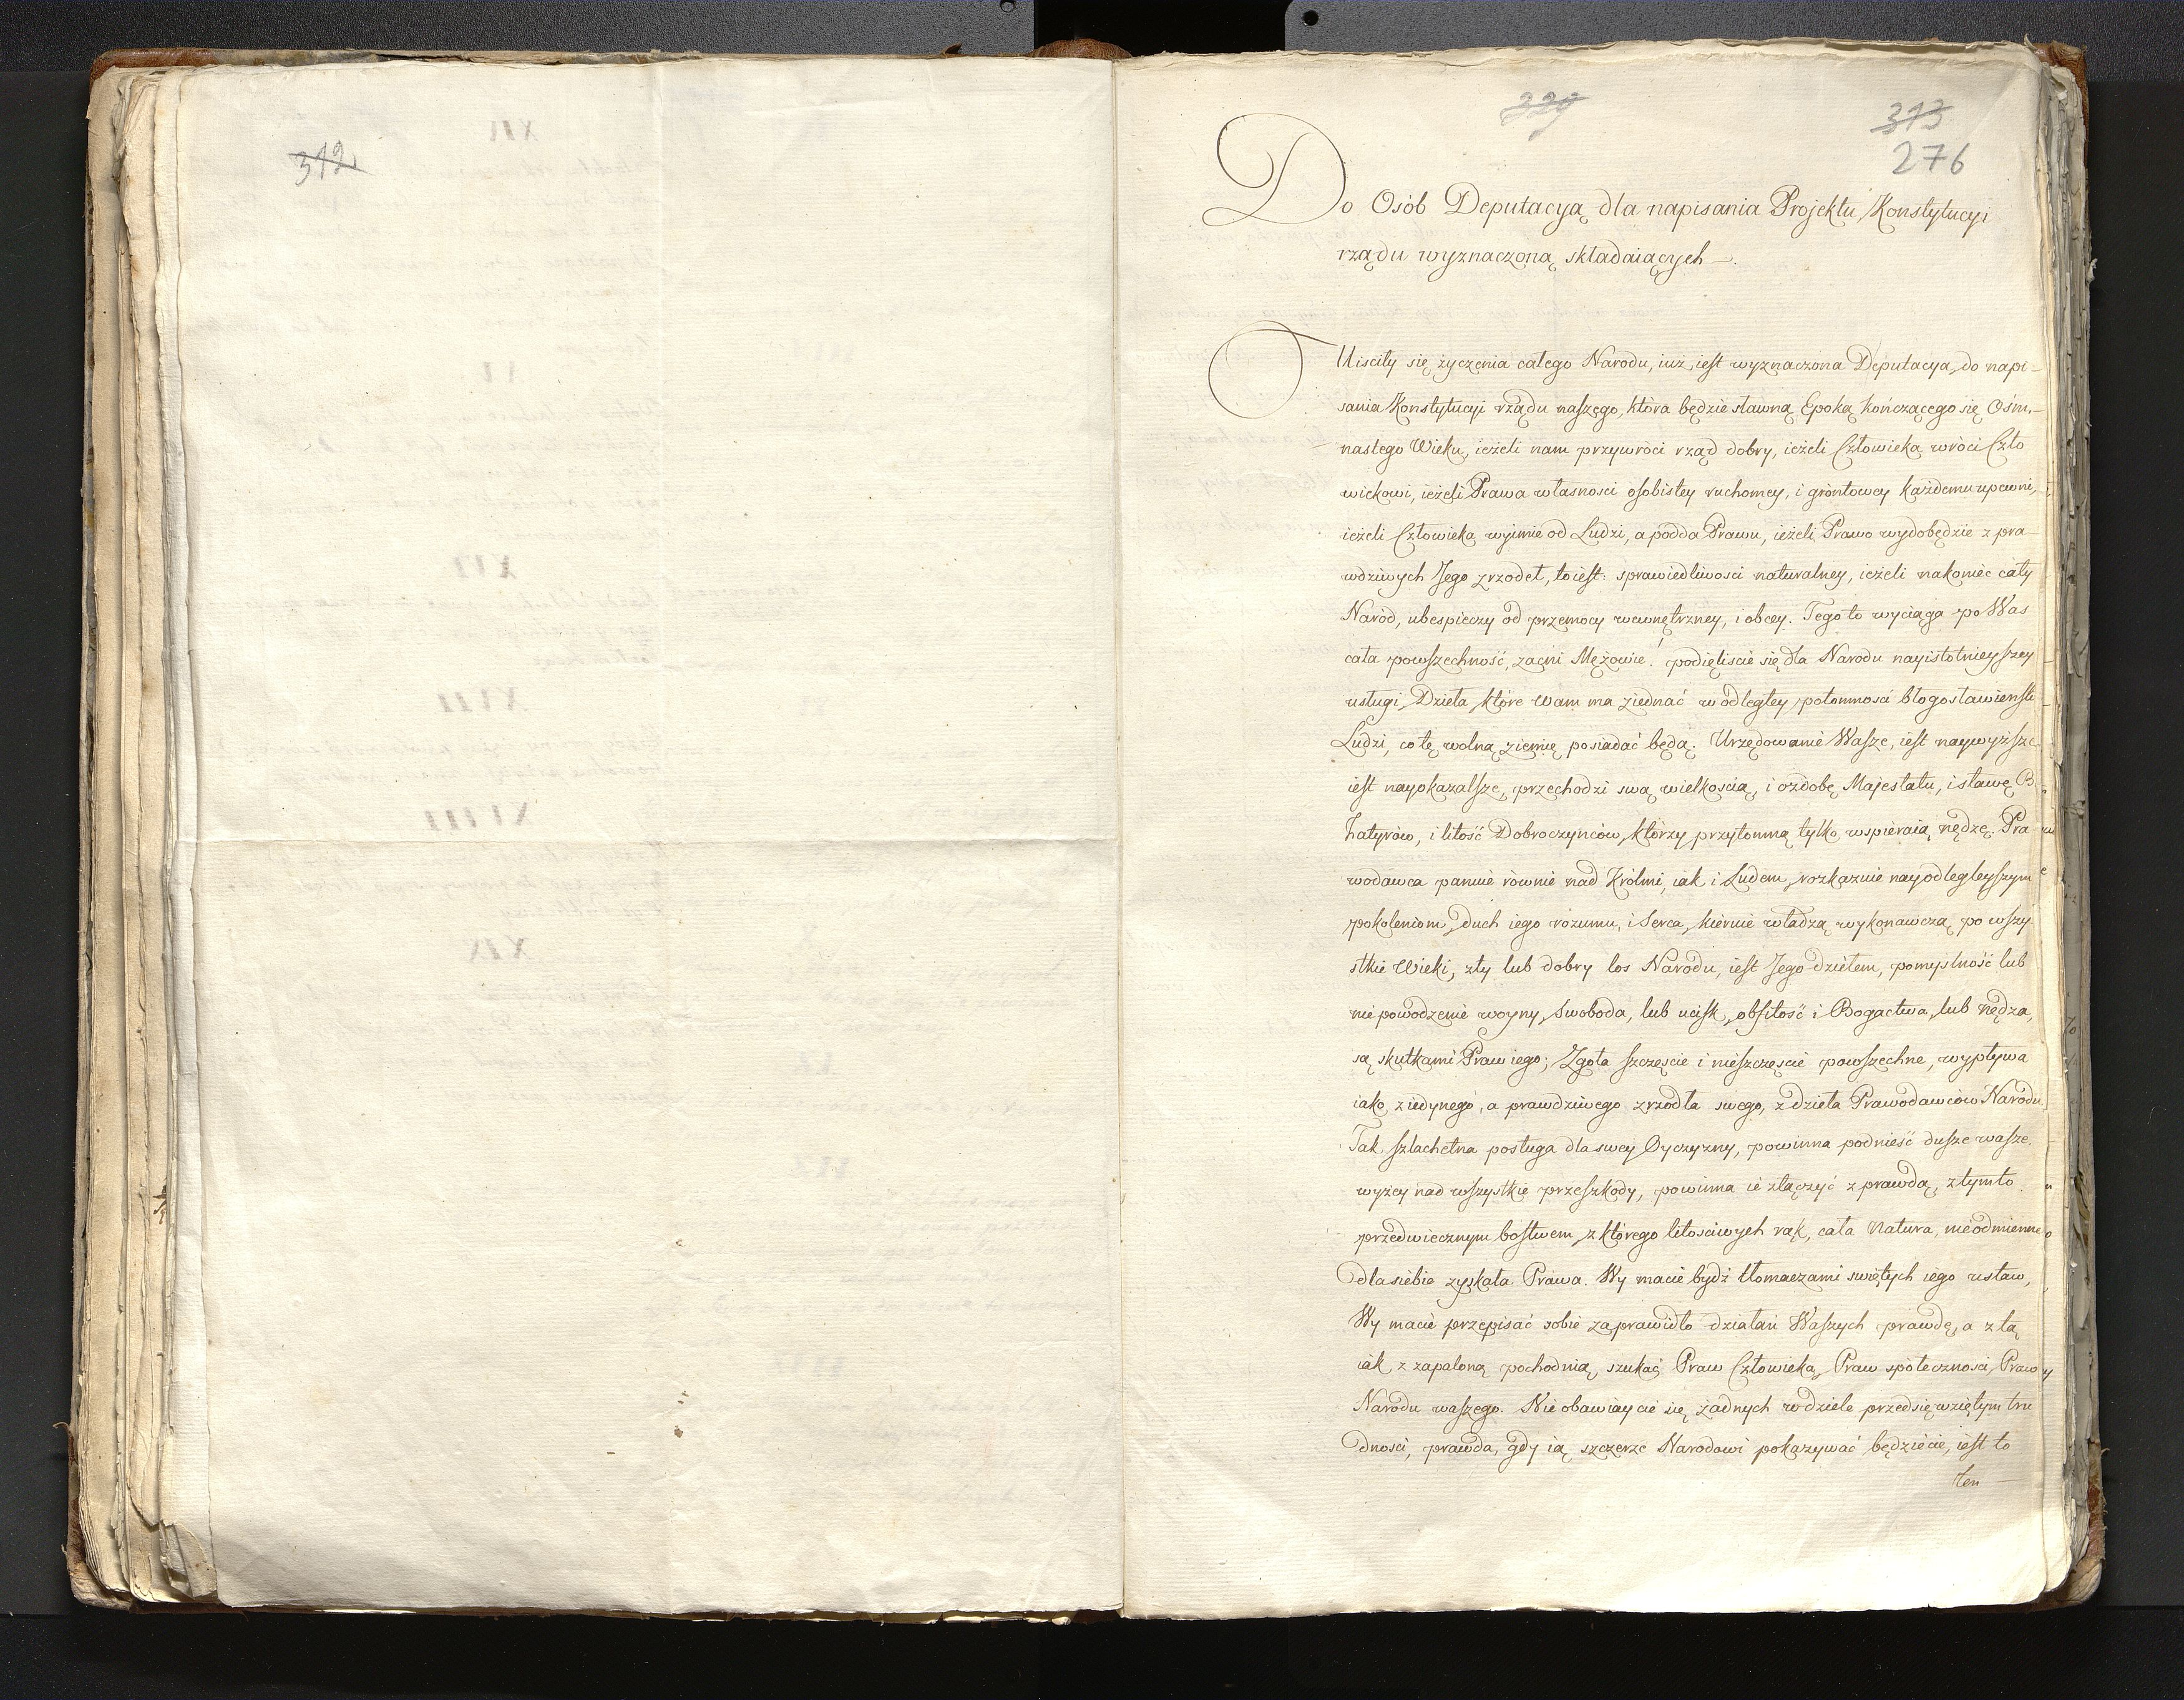 312
329
313
276
Do Osób Deputacyą dla napisania Projektu Konstytucyi
rządu wyznaczoną składaiących —.
Uiściły się życzenia całego Narodu, iuż iest wyznaczona Deputacya do napi-
sania Konstytucyi rządu naszego, która będzie sławną Epoką kończącego się Ośm-
nastego Wieku, ieżeli nam przywróci rząd dobry, ieżeli Człowieka wróci Czło
wiekowi, ieżeli Prawa własności osobistey ruchomey, i gróntowey każdemu upewni,
ieżeli Człowieka wyimie od Ludzi, a podda Prawu, ieżeli Prawo wydobędzie z pra-
wdziwych Jego zrzodeł, to iest: sprawiedliwości naturalney, ieżeli nakoniec cały
Naród, ubespieczy od przemocy wewnętrzney, i obcey. Tego to wyciąga po Was
cała powszechność, zacni Mężowie! podięliście się dla Narodu nayistotnieyszey
usługi, Dzieła, które Wam ma ziednać w odległey potomności błogosławieńst
Ludzi, co tę wolną ziemię posiadać będą. Urzędowanie Wasze, iest naywyższe
iest nayokazalsze, przechodzi swą wielkością, i ozdobę Majestatu, i sławę B
hatyrów, i litość Dobroczyńców, którzy przytomną tylko wspieraią nędzę. Pra-
wodawca panuie równie nad Królmi, iak i Ludem, rozkazuie nayodlegleyszym
pokoleniom, duch iego rozumu, i Serca, kieruie władzą wykonawczą, po wszy
stkie Wieki, zły lub dobry los Narodu, iest Jego dziełem, pomyslność lub
nie powodzenie woyny, Swoboda, lub ucisk, obfitość i Bogactwa, lub nędza,
są skutkami Praw iego; Zgoła szczęscie i nieszczęscie powszechne, wypływa
iako z iedynego, a prawdziwego zrzodła swego, z dzieła Prawodawców Narodu.
Tak szlachetna posługa dla swey Oyczyzny, powinna podnieść dusze wasze,
wyżey nad wszystkie przeszkody, powinna ie złączyć z prawdą, z tym to
przedwiecznym bostwem, z którego litosciwych rąk, cała Natura, nieodmienne
dla siebie zyskała Prawa. Wy macie bydź tłomaczami swiętych iego ustaw,
Wy macie przepisać sobie za prawidło działań Waszych prawdę, a z tą
iak z zapaloną pochodnią, szukać Praw Człowieka, Praw społeczności, Praw
Narodu waszego. Nie obawiaycie się żadnych w dziele przedsięwziętym tru
dności, prawda, gdy ią szczerze Narodowi pokazywać będziecie, iest to
ten —